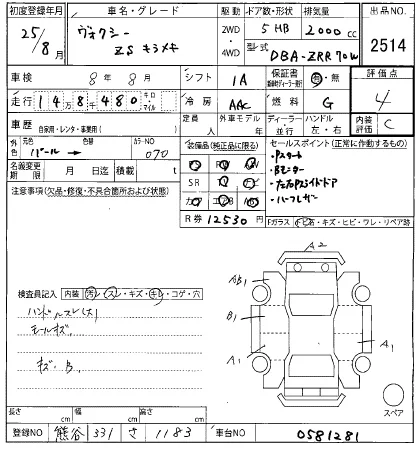 初度登録年月 車名・グレード 駆動 ドア数・形状 排気量 出品NO.
25/8月 ヴォクシー 2WD・4WD 5 HB 2000cc 2514
ZS キラメキ 型式 DBA-ZRR70W
車検 8年8月 シフト IA 保証書 有・無 評価点
走行 148480 キロ・マイル 冷房 AAC 燃料 G 4
車歴 自家用・レンタ・事業用( ) 定員 人 外車モデル 年 ディーラー・並行 ハンドル 左・右 内装 C
外色 元色 パール 色替 カラーNO 070 装備品(純正品に限る) セールスポイント(正常に作動するもの)
名義変更期限 月 日迄 積載 t SR
・Pスタート
・Bモニター
・ハーフレザー
注意事項(欠品・修復・不具合箇所および状態)
R券 12530円 Fガラス トビ石・キズ・ヒビ・ワレ・リペア跡
A2
AB1
B1
A1 A1
検査員記入 内装 汚レ・スレ・キズ・キレ・コゲ・穴
ハンドルスレ(大)
モールキズ
キズ・B
スペア
長さ cm 幅 cm 高さ cm
登録NO 熊谷 331 さ 1183 車台NO 0581281